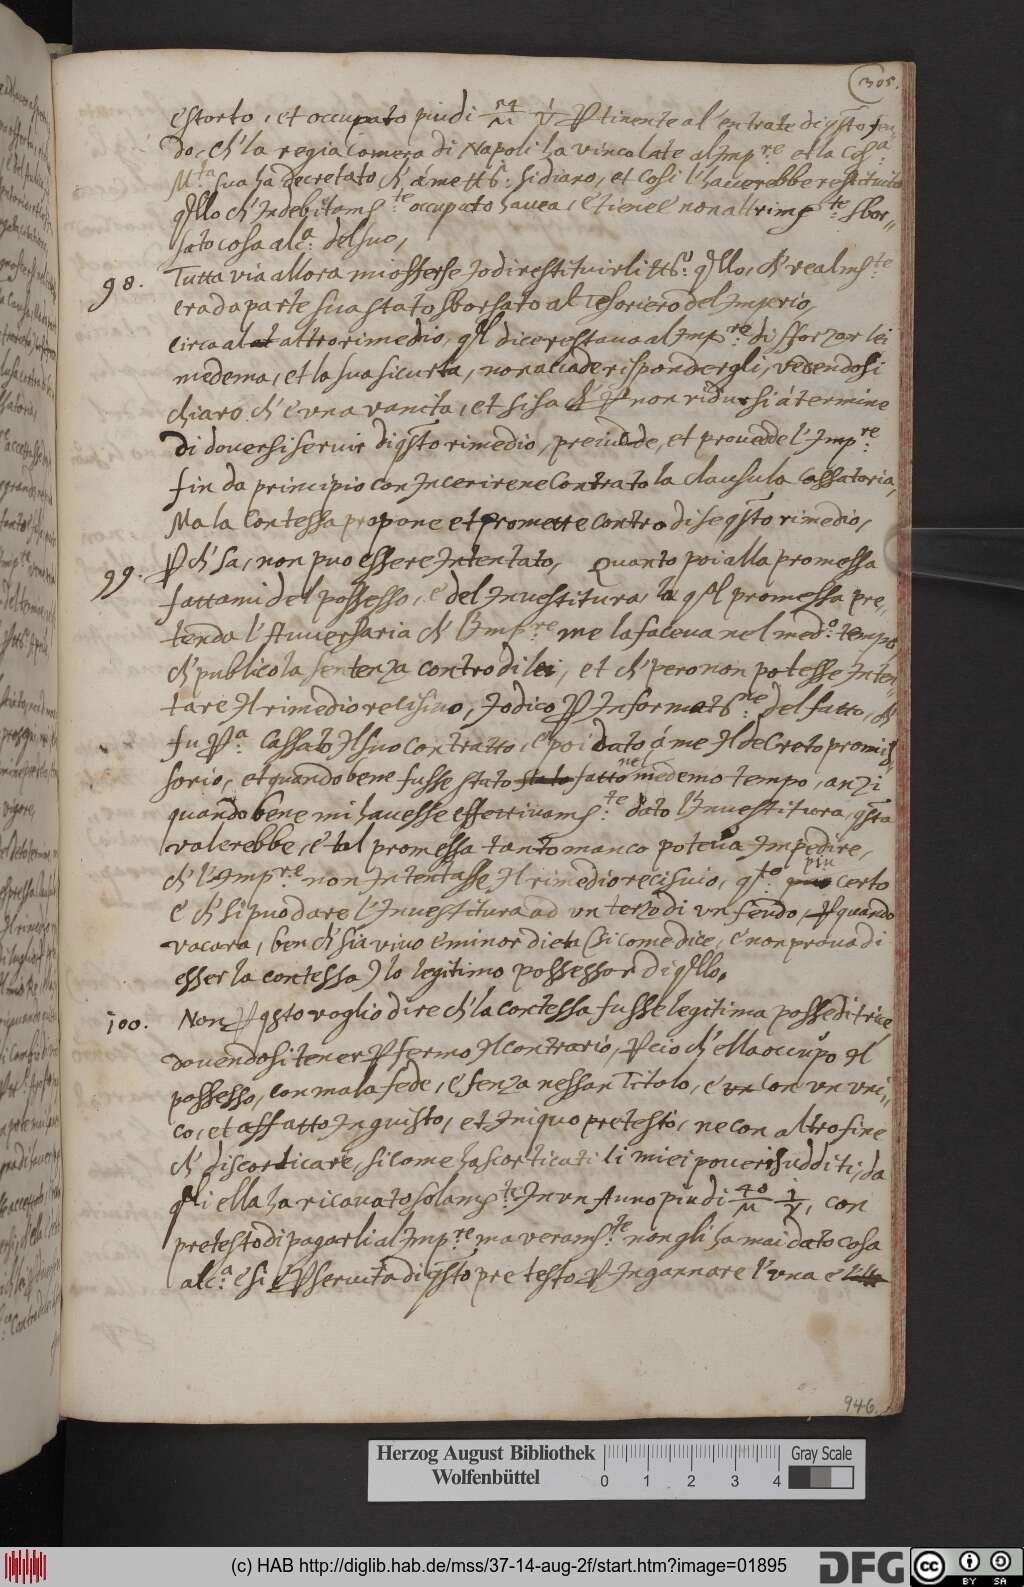 305.
estorto, et occupato piu di ꝑtinente al' entrate di qsto feu
do, ch' la regia Camera di Napoli ha vincolate al Imp:re et la Ces:a
M:ta sua ha decretato ch' a me si diano, et Cosi l'haverebbe restituito
qllo ch' Indebitams:te occupato havea, e tiene e non altrims:te sbor„
sato cosa alc:a del suo,
98. Tutta via allora mi offerse Io di restituirli qllo, ch' realms:te
era da parte sua stato sborsato al Tesoriero del Imperio,
circa al altro rimedio, ql dice restava al Imp:re di sforzar lei
medema, et la sua sicurta, non accade rispondergli, vedendosi
chiaro ch' e una vanita, et si sa ch' ꝑ non ridursi á termine
di doversi servir di qsto rimedio, preiude, et provedde l' Imp:re
fin da principio con Incerirene Contrato la clausula Cassatoria,
Ma la Contessa propone et promette contro di se qsto rimedio,
99. ꝑ ch' sa, non puo essere Intentato, Quanto poi alla promessa
fattami del possesso, e del Investitura, la ql promessa pre„
tenda l' Avversaria ch' l' Imp:re me la faceva nel med:o tempo,
ch' publico la sentenza contro di lei, et ch' pero non potesse Inten„
tare Il rimedio recisivo, Io dico ꝑ Informats:ne del fatto, ch'
fu Cassato Il suo contratto, e poi dato á me Il decreto promis„
sorio, et quando bene fusse stato stato fatto nel medemo tempo, anzi
quando bene mi havesse effettivams:te dato l' Investitura, qsta
valerebbe, e tal promessa tanto manco poteva Impedire,
ch' l' Imp:re non Intentasse Il rimedio recisivo, piu certo
e ch' si puo dare l' Investitura ad un terzo di un feudo, ꝑ quando
vacara, ben ch' sia vivo e minor di eta (si come dice, e non prova di
esser la contessa) lo legitimo possessor di qllo.
100. Non ꝑ qsto voglio dire ch' la contessa fusse legitima posseditrice,
dovendosi tener ꝑ fermo Il contrario, ꝑ cio ch' ella occupo Il
possesso, con mala fede, e senza nessan Titolo, e un con un uni„
co, et affatto Inguisto, et Iniquo pretesto, ne con altro fine
ch' discorticare, si come ha scorticati li miei poveri sudditi, da
qli ella ha ricavato solams:te In un Anno piu di 40/M, con
pretesto di pagarli al Imp:re ma verams:te non gli ha mai dato cosa
alc:a e si e ꝑ servita di qsto pretesto ꝑ Ingannare l' una e
946.
Herzog August Bibliothek
Wolfenbüttel
0 1 2 3 4
Gray Scale
(c) HAB http://diglib.hab.de/mss/37-14-aug-2f/start.htm?image=01895
DFG
cc BY SA